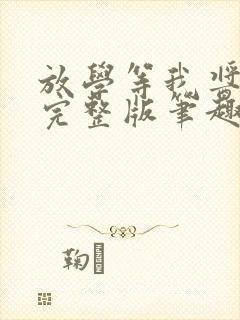 放學等我將
完整版筆趣
鞠